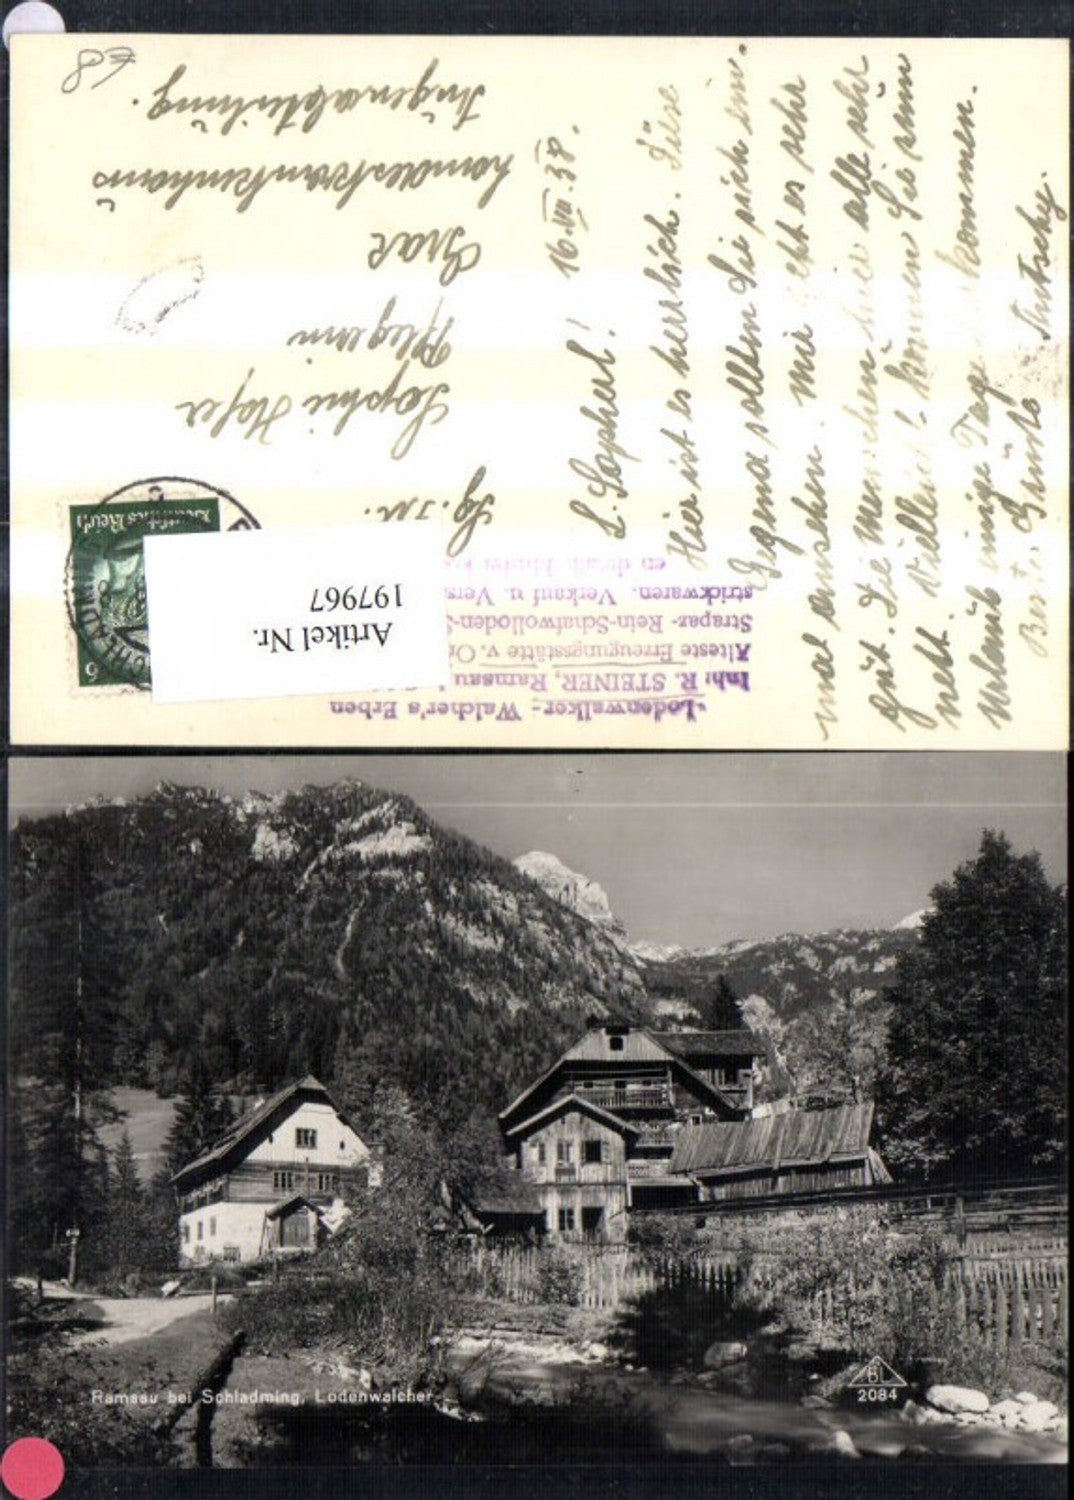 €8
16.VII.38.
L. Sopherl!
Hier ist es herrlich. Diese
Gegend sollten Sie sich ein-
mal ansehen. Mir geht es sehr
gut. Die Menschen hier alle sehr
nett. Vielleicht können Sie zum
Urlaub einige Tage kommen.
Beste Grüße
Sophie Hofer
Pflegerin
Graz
Landeskrankenhaus
Augenabteilung.
Deutsches Reich
6
Artikel Nr.
197967
Lodenwalker - Walcher's Erben
Inh: R. STEINER, Ramsau
Älteste Erzeugungsstätte v.
Strapaz- Rein-Schafwolloden-
strickwaren. Verkauf u. Vers
en detail. Muster
Ramsau bei Schladming, Lodenwalcher
BL
2084